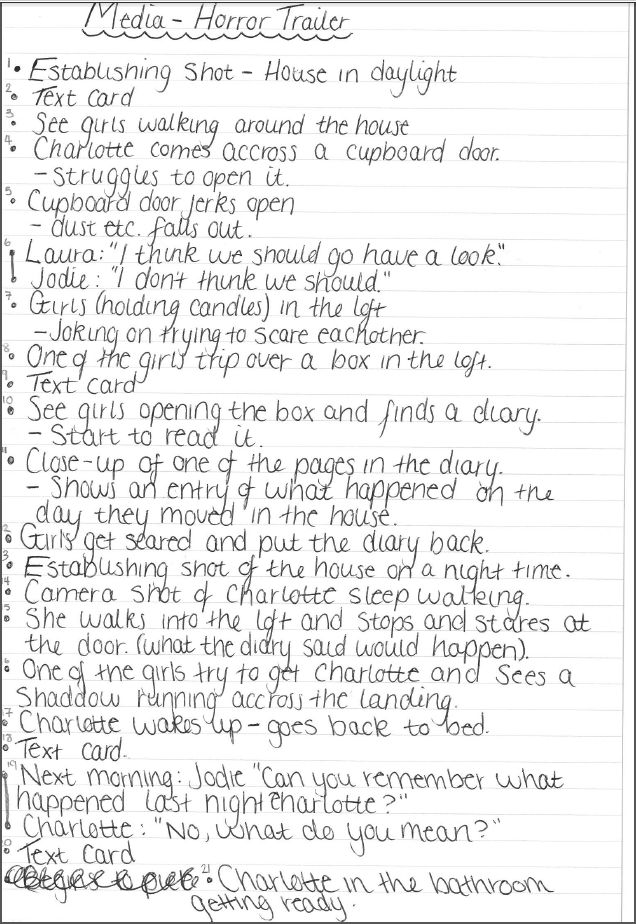 Media - Horror Trailer
1. Establishing Shot - House in daylight
2. Text card
3. See girls walking around the house
4. Charlotte comes accross a cupboard door.
- Struggles to open it.
5. Cupboard door jerks open
- dust etc. falls out.
6. Laura: "I think we should go have a look".
Jodie: "I don't think we should."
7. Girls (holding candles) in the loft
- Joking on trying to scare eachother.
8. One of the girls trip over a box in the loft.
9. Text card
10. See girls opening the box and finds a diary.
- Start to read it.
11. Close-up of one of the pages in the diary.
- Shows an entry of what happened on the
day they moved in the house.
2. Girls get scared and put the diary back.
3. Establishing shot of the house on a night time.
4. Camera shot of Charlotte sleep walking.
5. She walks into the loft and stops and stares at
the door. (what the diary said would happen).
6. One of the girls try to get Charlotte and sees a
Shaddow running accross the landing.
17. Charlotte wakes up - goes back to bed.
18. Text card.
19. Next morning: Jodie "Can you remember what
happened last night Charlotte?"
Charlotte: "No, what do you mean?"
0. Text card
21. Charlotte in the bathroom
getting ready.